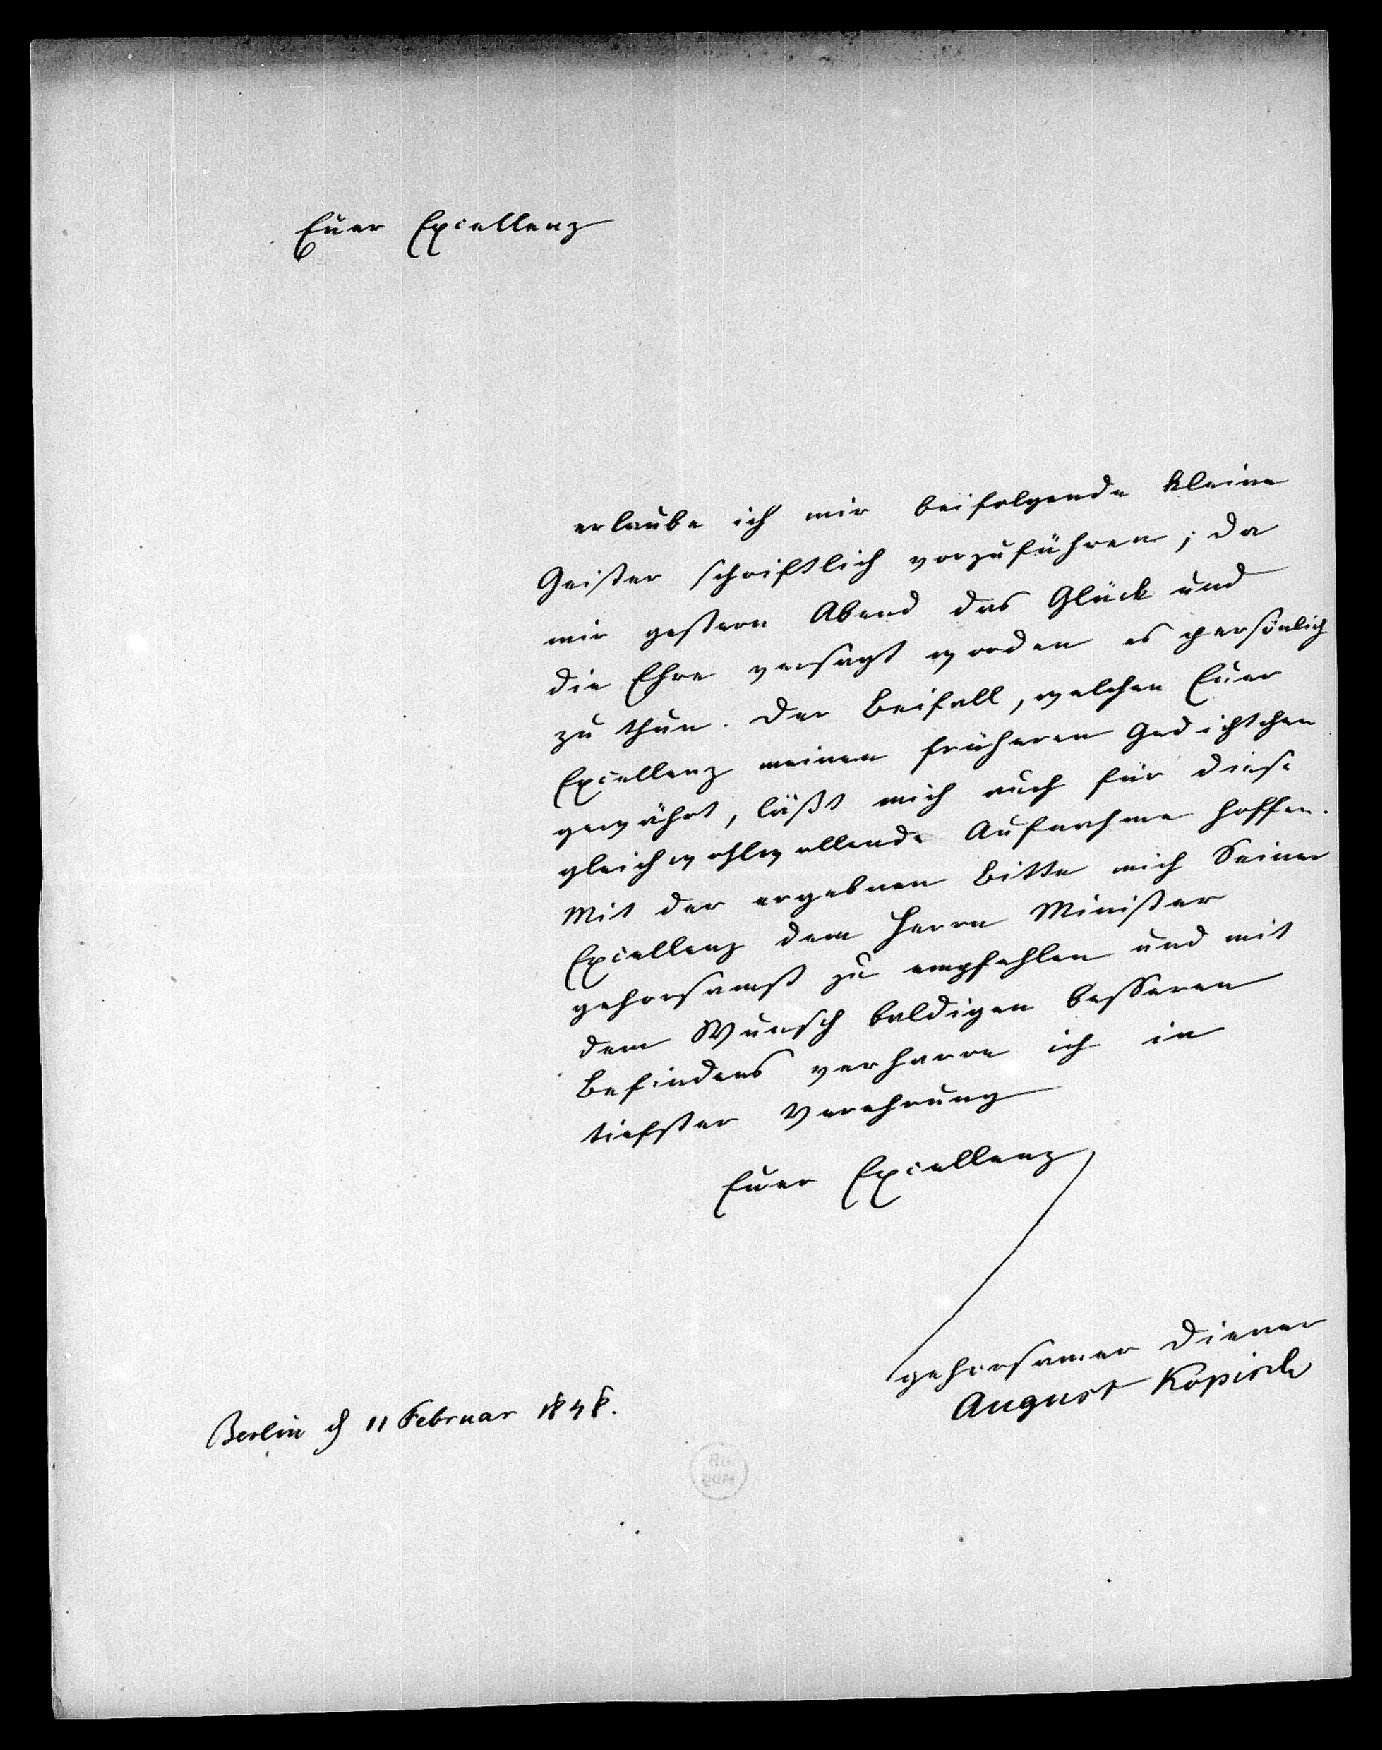 Euer Excellenz
erlaube ich mir beifolgende kleine
Geister schriftlich vorzuführen, da
mir gestern Abend das Glück und
die Ehre versagt worden es persönlich
zu thun. Der Beifall, welchen Euer
Excellenz meinen früheren Gedichtchen
gewährt, läßt mich auch für diese
gleich wohlwollende Aufnahme hoffen.
Mit der ergebnen Bitte mich Seiner
Excellenz dem Herrn Minister
gehorsamst zu empfehlen und mit
dem Wunsch baldigen besseren
Befindens verharre ich in
tiefster Verehrung
Euer Excellenz
gehorsamer Diener
August Kopisch
Berlin d 11 Februar 1848.